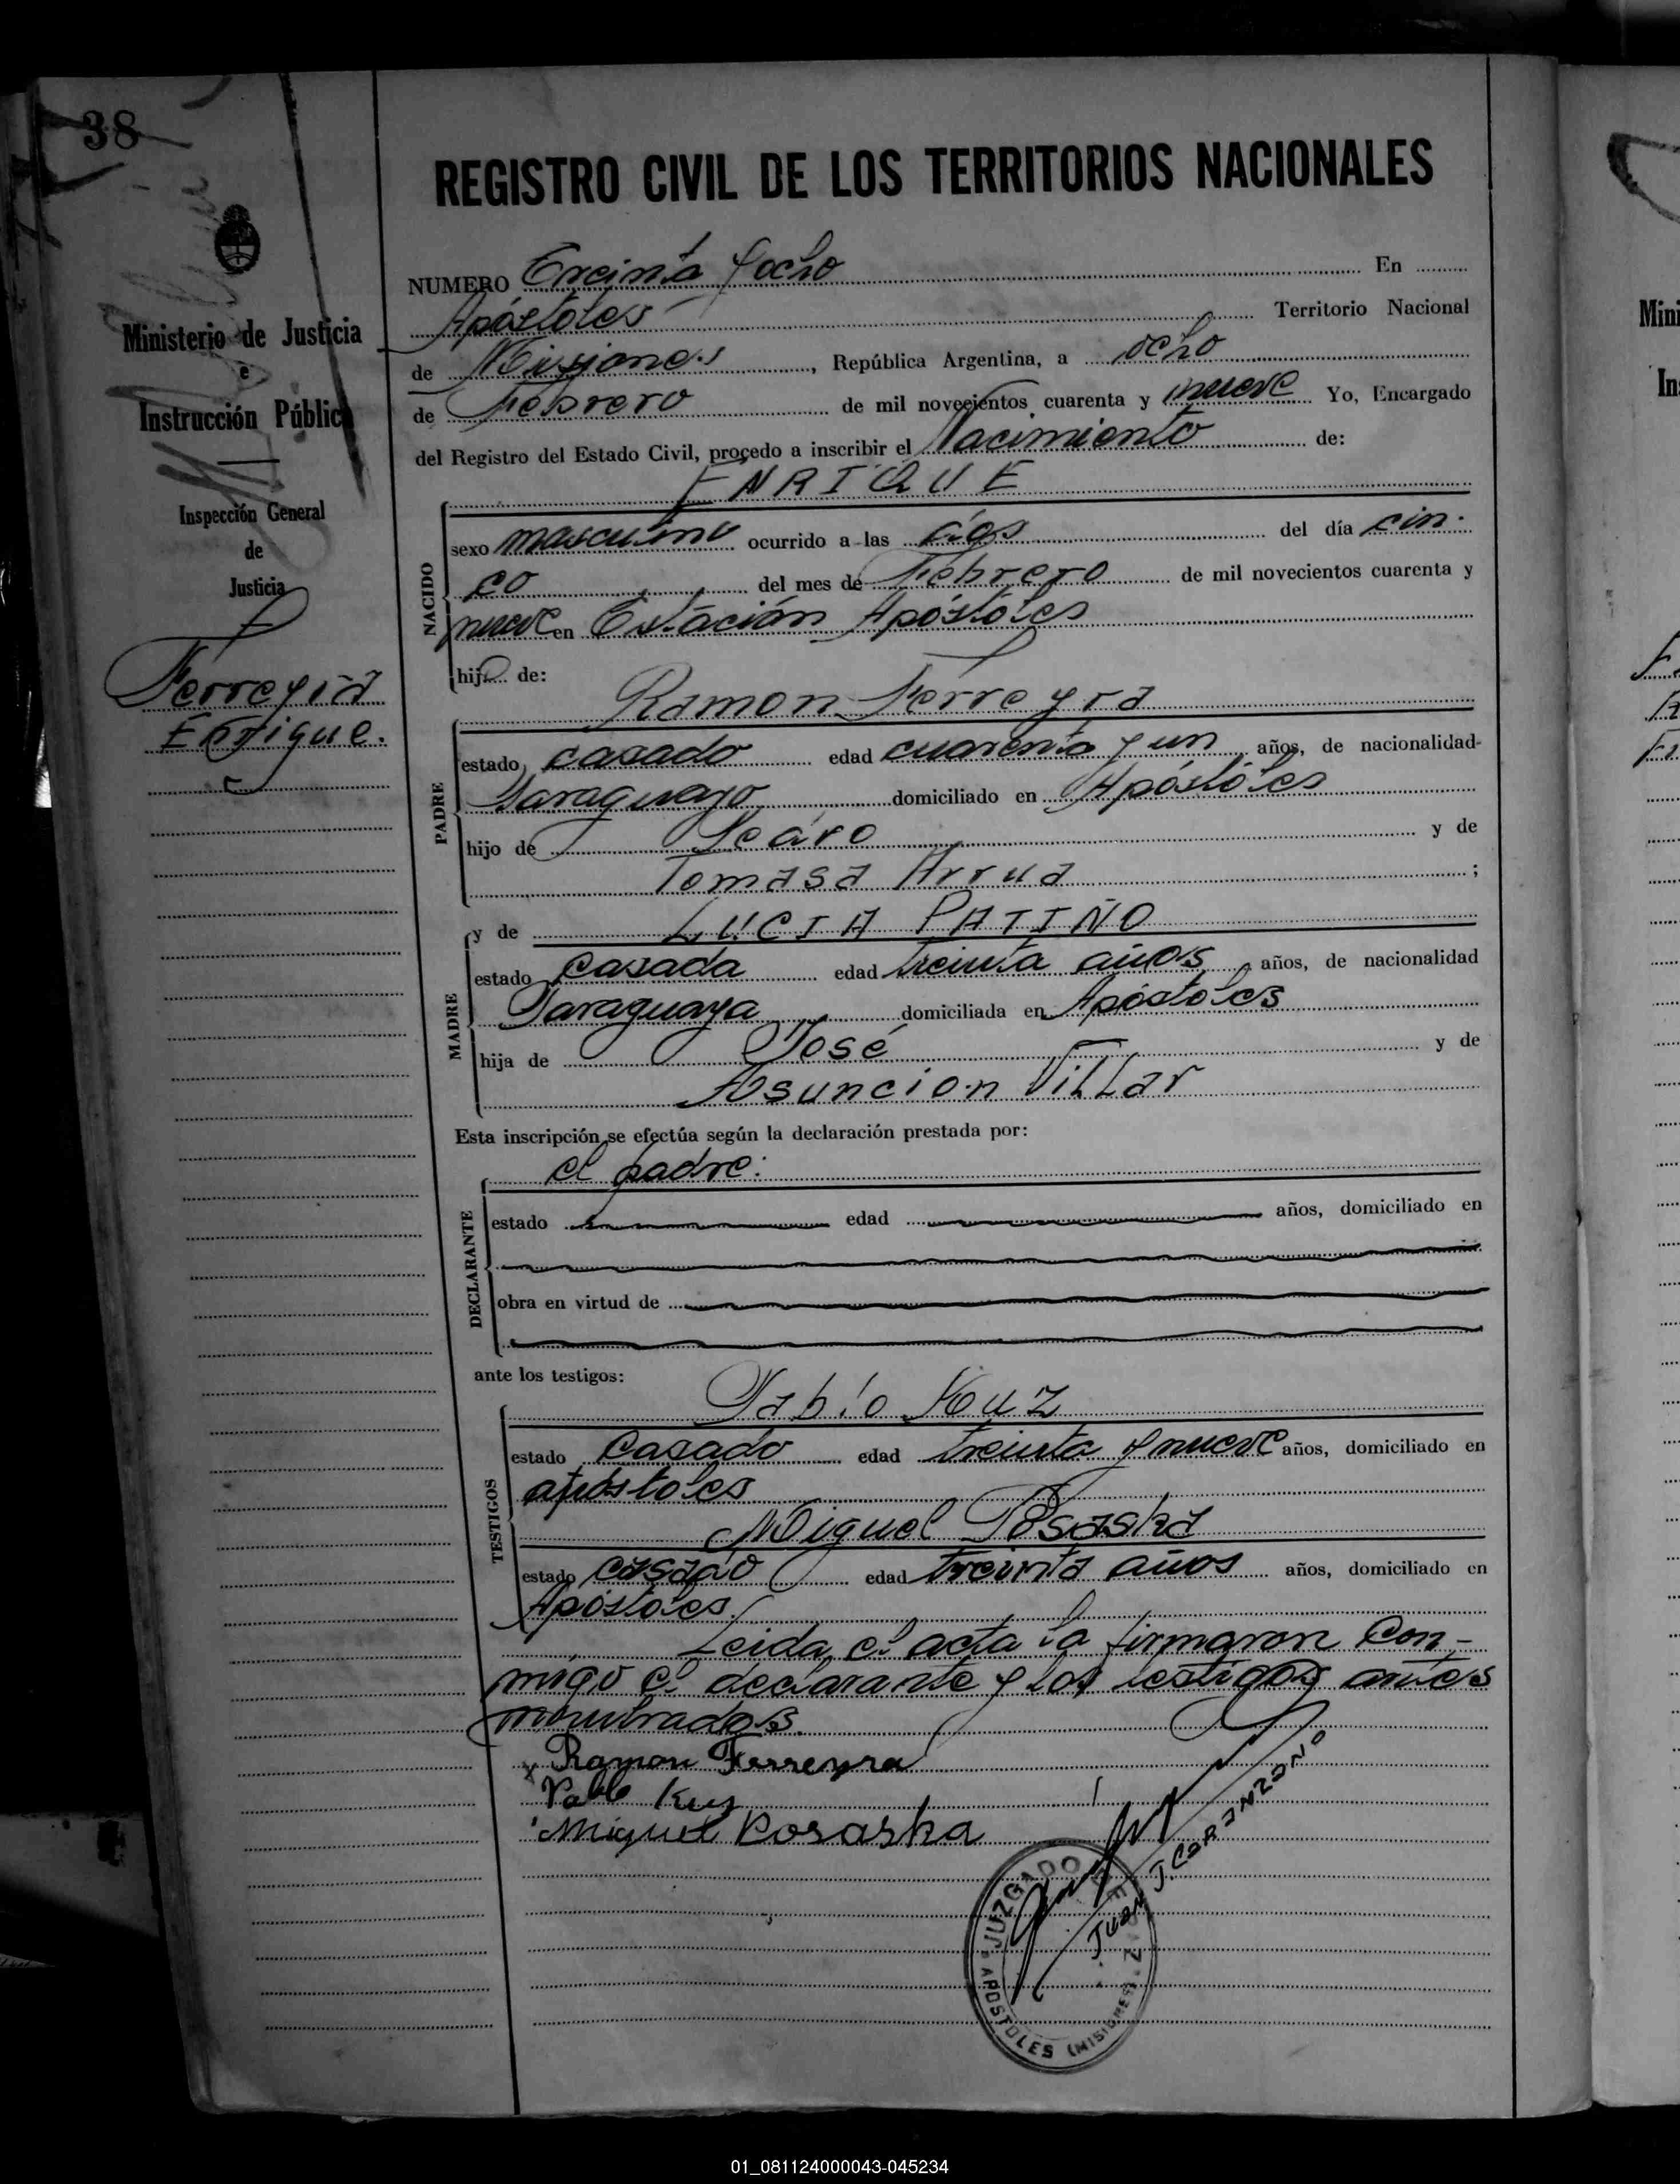 38
REGISTRO CIVIL DE LOS TERRITORIOS NACIONALES
Ministerio de Justicia
e
Instrucción Públic
Inspección General
de
Justicia
Ferreyra
Enrique.
NUMERO Treinta y ocho En
Apóstoles Territorio Nacional
de Misiones, República Argentina, a ocho
de Febrero de mil novecientos cuarenta y nueve Yo, Encargado
del Registro del Estado Civil, procedo a inscribir el Nacimiento de:
ENRIQUE
NACIDO
sexo masculino ocurrido a las dos del día cin-
co del mes de Febrero de mil novecientos cuarenta y
nueve en Estación Apóstoles
hijo de:
Ramon Ferreyra
PADRE
estado casado edad cuarenta y un años, de nacionalidad
Paraguayo domiciliado en Apóstoles
hijo de Pedro y de
Tomasa Arrua ;
y de LUCIA PATIÑO
MADRE
estado casada edad treinta años años, de nacionalidad
Paraguaya domiciliada en Apóstoles
hija de José y de
Asuncion Villar
Esta inscripción se efectúa según la declaración prestada por:
el padre:
DECLARANTE
estado edad años, domiciliado en
obra en virtud de
ante los testigos:
Pablo Kuz
TESTIGOS
estado casado edad treinta y nueve años, domiciliado en
apóstoles
Miguel Posaska
estado casado edad treinta años años, domiciliado en
Apóstoles.
Leida el acta la firmaron con-
migo el declarante y los testigos antes
nombrados.
x Ramon Ferreyra
Pablo Kuz
Miguel Posaska
Juan J. CORINZANO
JUZGADO DE PAZ
APOSTOLES (MISIONES)
Mini
In
01_081124000043-045234